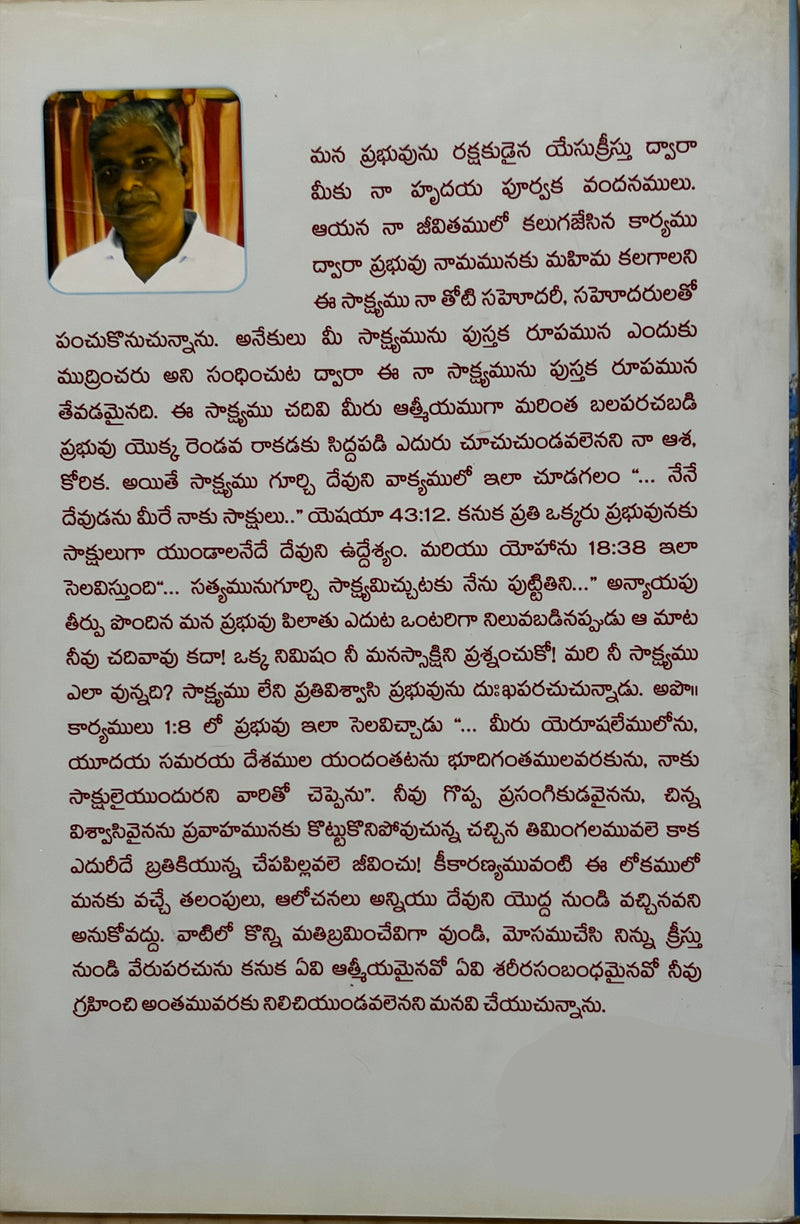 మన ప్రభువును రక్షకుడైన యేసుక్రీస్తు ద్వారా
మీకు నా హృదయ పూర్వక వందనములు.
ఆయన నా జీవితములో కలుగజేసిన కార్యము
ద్వారా ప్రభువు నామమునకు మహిమ కలగాలని
ఈ సాక్ష్యము నా తోటి సహెూదరీ, సహెూదరులతో
పంచుకొనుచున్నాను. అనేకులు మీ సాక్ష్యమును పుస్తక రూపమున ఎందుకు
ముద్రించరు అని సంధించుట ద్వారా ఈ నా సాక్ష్యమును పుస్తక రూపమున
తేవడమైనది. ఈ సాక్ష్యము చదివి మీరు ఆత్మీయముగా మరింత బలపరచబడి
ప్రభువు యొక్క రెండవ రాకడకు సిద్దపడి ఎదురు చూచుచుండవలెనని నా ఆశ,
కోరిక. అయితే సాక్ష్యము గూర్చి దేవుని వాక్యములో ఇలా చూడగలం “... నేనే
దేవుడను మీరే నాకు సాక్షులు..” యెషయా 43:12. కనుక ప్రతి ఒక్కరు ప్రభువునకు
సాక్షులుగా యుండాలనేదే దేవుని ఉద్దేశ్యం. మరియు యోహాను 18:38 ఇలా
సెలవిస్తుంది“... సత్యమునుగూర్చి సాక్ష్యమిచ్చుటకు నేను పుట్టితిని...” అన్యాయపు
తీర్పు పొందిన మన ప్రభువు పిలాతు ఎదుట ఒంటరిగా నిలువబడినప్పుడు ఆ మాట
నీవు చదివావు కదా! ఒక్క నిమిషం నీ మనస్సాక్షిని ప్రశ్నంచుకో! మరి నీ సాక్ష్యము
ఎలా వున్నది? సాక్ష్యము లేని ప్రతివిశ్వాసి ప్రభువును దుఃఖపరచుచున్నాడు. అపొ॥
కార్యములు 1:8 లో ప్రభువు ఇలా సెలవిచ్చాడు “... మీరు యెరూషలేములోను,
యూదయ సమరయ దేశముల యందంతటను భూదిగంతములవరకును, నాకు
సాక్షులైయుందురని వారితో చెప్పెను”. నీవు గొప్ప ప్రసంగికుడవైనను, చిన్న
విశ్వాసివైనను ప్రవాహమునకు కొట్టుకొనిపోవుచున్న చచ్చిన తిమింగలమువలె కాక
ఎదురీదే బ్రతికియున్న చేపపిల్లవలె జీవించు! కీకారణ్యమువంటి ఈ లోకములో
మనకు వచ్చే తలంపులు, ఆలోచనలు అన్నియు దేవుని యొద్ద నుండి వచ్చినవని
అనుకోవద్దు. వాటిలో కొన్ని మతిబ్రమించేవిగా వుండి, మోసముచేసి నిన్ను క్రీస్తు
నుండి వేరుపరచును కనుక ఏవి ఆత్మీయమైనవో ఏవి శరీరసంబంధమైనవో నీవు
గ్రహించి అంతమువరకు నిలిచియుండవలెనని మనవి చేయుచున్నాను.